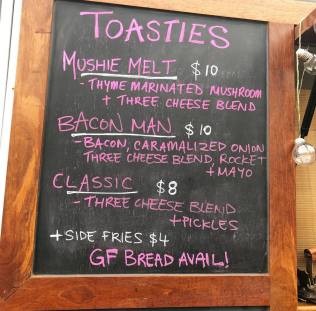 TOASTIES
MUSHIE MELT $10
- THYME MARINATED MUSHROOM
+ THREE CHEESE BLEND
BACON MAN $10
- BACON, CARAMALIZED ONION
THREE CHEESE BLEND, ROCKET
+ MAYO
CLASSIC $8
- THREE CHEESE BLEND
+ PICKLES
+ SIDE FRIES $4
GF BREAD AVAIL!